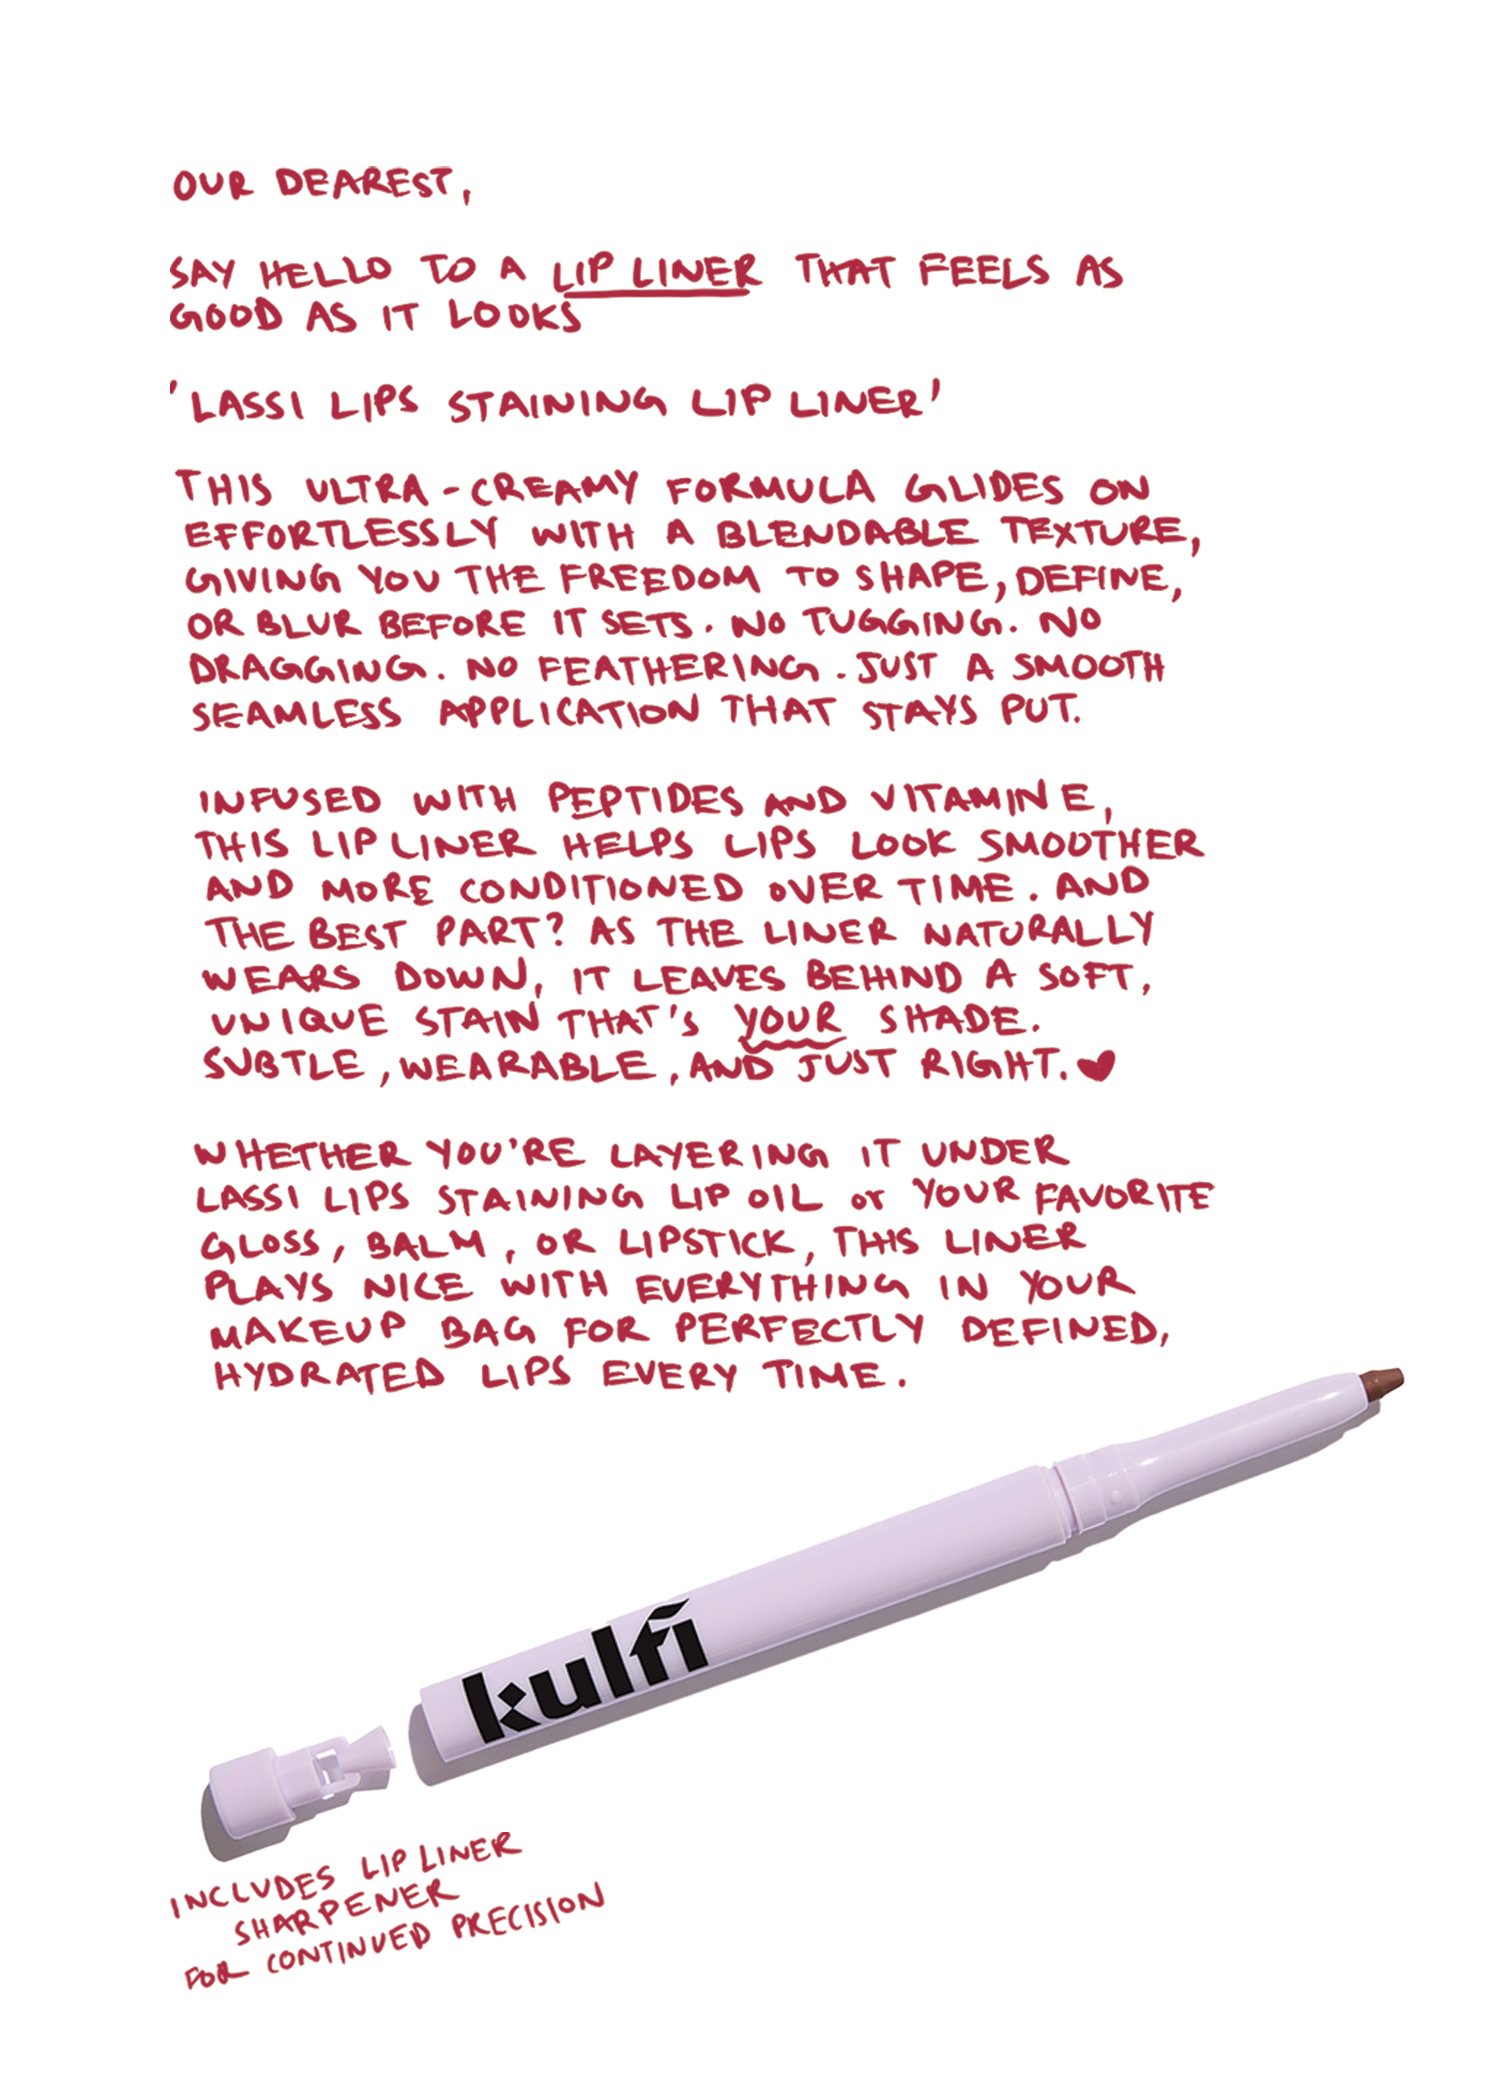 OUR DEAREST,
SAY HELLO TO A LIP LINER THAT FEELS AS
GOOD AS IT LOOKS
'LASSI LIPS STAINING LIP LINER'
THIS ULTRA-CREAMY FORMULA GLIDES ON
EFFORTLESSLY WITH A BLENDABLE TEXTURE,
GIVING YOU THE FREEDOM TO SHAPE, DEFINE,
OR BLUR BEFORE IT SETS. NO TUGGING. NO
DRAGGING. NO FEATHERING. JUST A SMOOTH
SEAMLESS APPLICATION THAT STAYS PUT.
INFUSED WITH PEPTIDES AND VITAMIN E,
THIS LIP LINER HELPS LIPS LOOK SMOOTHER
AND MORE CONDITIONED OVER TIME. AND
THE BEST PART? AS THE LINER NATURALLY
WEARS DOWN, IT LEAVES BEHIND A SOFT,
UNIQUE STAIN THAT'S YOUR SHADE.
SUBTLE, WEARABLE, AND JUST RIGHT. ♥
WHETHER YOU'RE LAYERING IT UNDER
LASSI LIPS STAINING LIP OIL or YOUR FAVORITE
GLOSS, BALM, OR LIPSTICK, THIS LINER
PLAYS NICE WITH EVERYTHING IN YOUR
MAKEUP BAG FOR PERFECTLY DEFINED,
HYDRATED LIPS EVERY TIME.
kulfi
INCLUDES LIP LINER
SHARPENER
FOR CONTINUED PRECISION